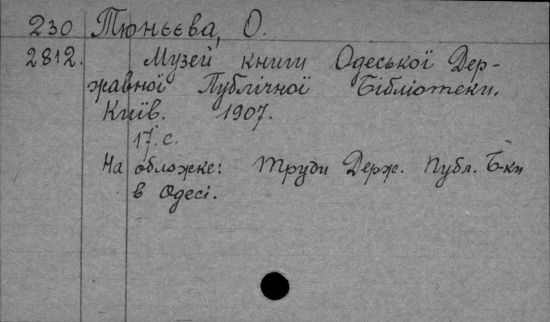 230 Тюнєєва, О.
2812. Музей книги Одеської Дер-
жавної Публічної Бібліотеки.
Київ. 1907.
17 с.
На обложке: Труди Держ. Публ. Б-ки
в Одесі.